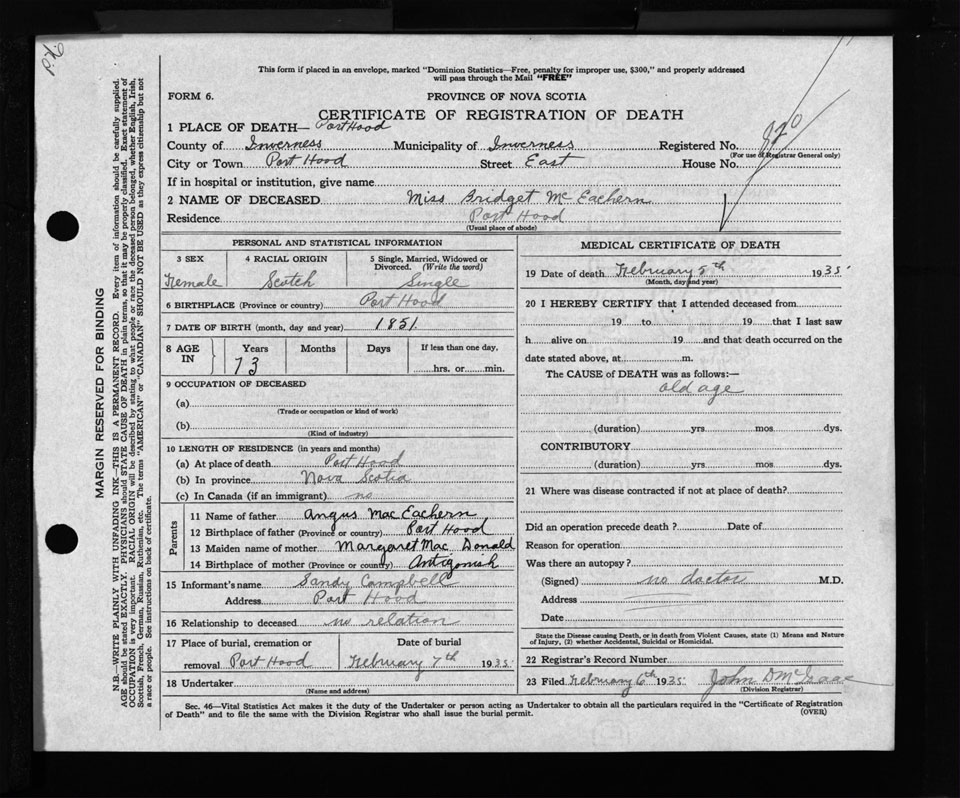 This form if placed in an envelope, marked "Dominion Statistics—Free, penalty for improper use, $300," and properly addressed
will pass through the Mail "FREE"
FORM 6. PROVINCE OF NOVA SCOTIA
CERTIFICATE OF REGISTRATION OF DEATH
1 PLACE OF DEATH— Port Hood
County of Inverness Municipality of Inverness Registered No. 870
(For use of Registrar General only)
City or Town Port Hood Street East House No.
If in hospital or institution, give name
2 NAME OF DECEASED Miss Bridget McEachern
Residence Port Hood
(Usual place of abode)
PERSONAL AND STATISTICAL INFORMATION
3 SEX 4 RACIAL ORIGIN 5 Single, Married, Widowed or
Divorced. (Write the word)
Female Scotch Single
6 BIRTHPLACE (Province or country) Port Hood
7 DATE OF BIRTH (month, day and year) 1851
8 AGE IN Years Months Days If less than one day,
73 hrs. or min.
9 OCCUPATION OF DECEASED
(a)
(Trade or occupation or kind of work)
(b)
(Kind of industry)
10 LENGTH OF RESIDENCE (in years and months)
(a) At place of death Port Hood
(b) In province Nova Scotia
(c) In Canada (if an immigrant) no
Parents
11 Name of father Angus MacEachern
12 Birthplace of father (Province or country) Port Hood
13 Maiden name of mother Margaret MacDonald
14 Birthplace of mother (Province or country) Antigonish
15 Informant's name Sandy Campbell
Address Port Hood
16 Relationship to deceased no relation
17 Place of burial, cremation or Date of burial
removal Port Hood February 7th 1935
18 Undertaker
(Name and address)
MEDICAL CERTIFICATE OF DEATH
19 Date of death February 5th 1935
(Month, day and year)
20 I HEREBY CERTIFY that I attended deceased from
19 to 19 that I last saw
h alive on 19 and that death occurred on the
date stated above, at m.
The CAUSE of DEATH was as follows:—
old age
(duration) yrs mos dys.
CONTRIBUTORY
(duration) yrs. mos. dys.
21 Where was disease contracted if not at place of death?
Did an operation precede death? Date of
Reason for operation
Was there an autopsy?
(Signed) no doctor M.D.
Address
Date
State the Disease causing Death, or in death from Violent Causes, state (1) Means and Nature
of Injury, (2) whether Accidental, Suicidal or Homicidal.
22 Registrar's Record Number
23 Filed February 6th 1935 John D McIsaac
(Division Registrar)
Sec. 46—Vital Statistics Act makes it the duty of the Undertaker or person acting as Undertaker to obtain all the particulars required in the "Certificate of Registration
of Death" and to file the same with the Division Registrar who shall issue the burial permit. (OVER)
MARGIN RESERVED FOR BINDING
N.B.—WRITE PLAINLY WITH UNFADING INK—THIS IS A PERMANENT RECORD. Every item of information should be carefully supplied.
AGE should be stated EXACTLY. PHYSICIANS should STATE CAUSE OF DEATH in plain terms, so that it may be properly classified. Exact statement of
OCCUPATION is very important. RACIAL ORIGIN will be described by stating to what people or race the deceased person belonged, whether English, Irish,
Scottish, French, German, Russian, Ruthenian, etc. The terms "AMERICAN" or "CANADIAN" SHOULD NOT BE USED as they express citizenship but not
a race or people. See instructions on back of certificate.